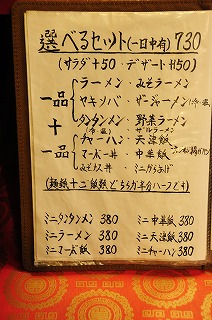 選べるセット(一日中有) 730
(サラダ+50・デザート+150)
一品
ラーメン・みそラーメン
ヤキソバ・ザージャーメン
タンタンメン・野菜ラーメン
+
一品
チャーハン・天津飯
マーボー丼・中華飯
ミニからあげ
(麺飯+ご飯類どちらか半分ハーフです)
ミニタンタンメン 380 ミニ中華飯 380
ミニラーメン 380 ミニ天津飯 380
ミニマーボ飯 380 ミニチャーハン 380